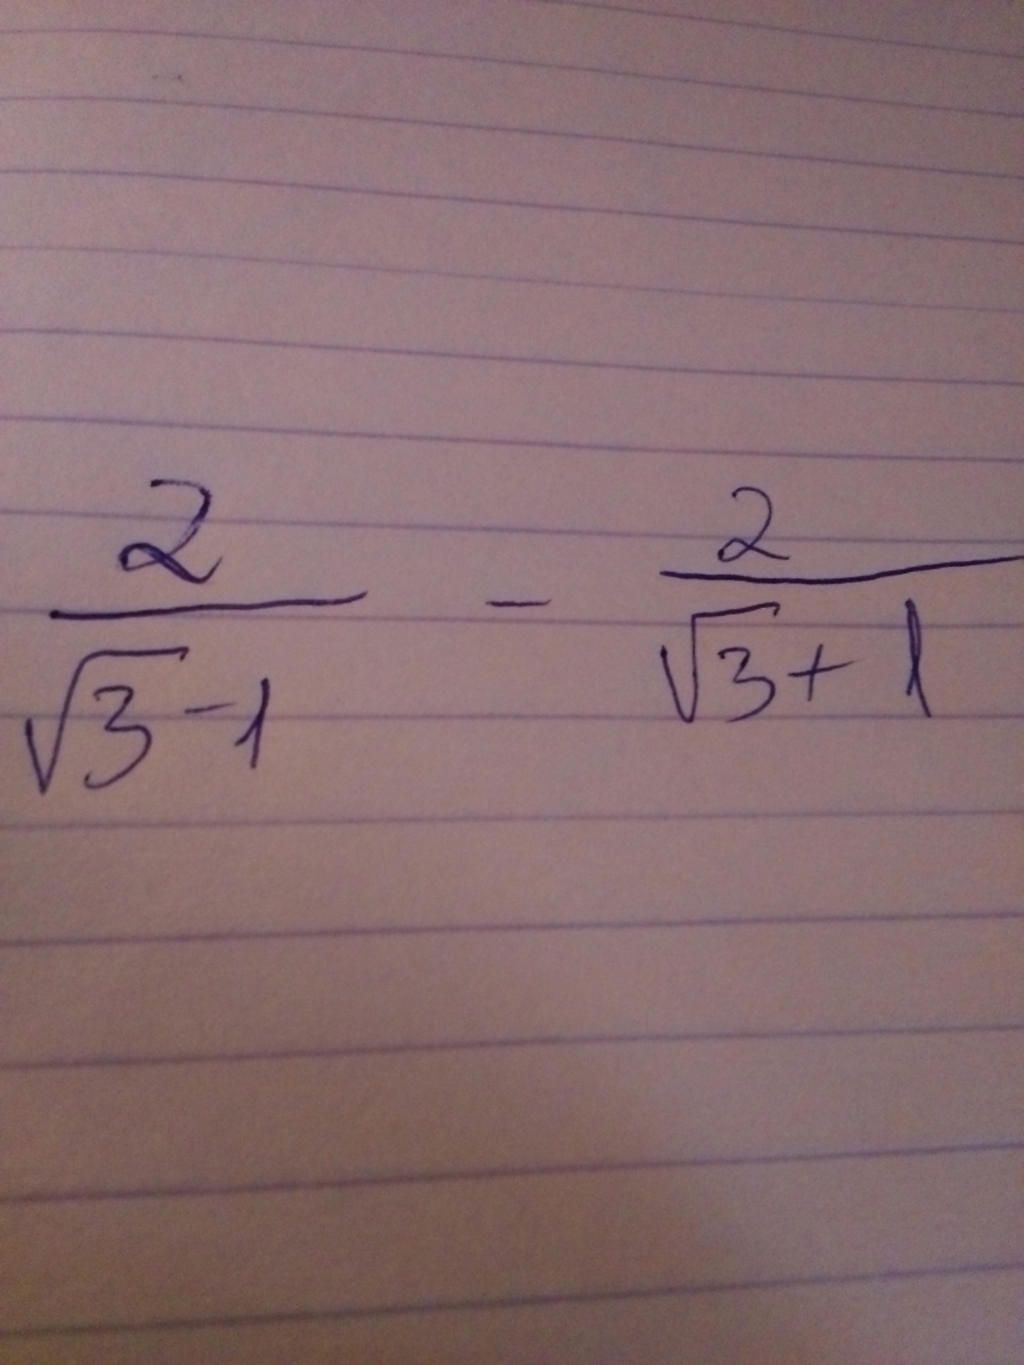 2/(√3-1) - 2/(√3+1)